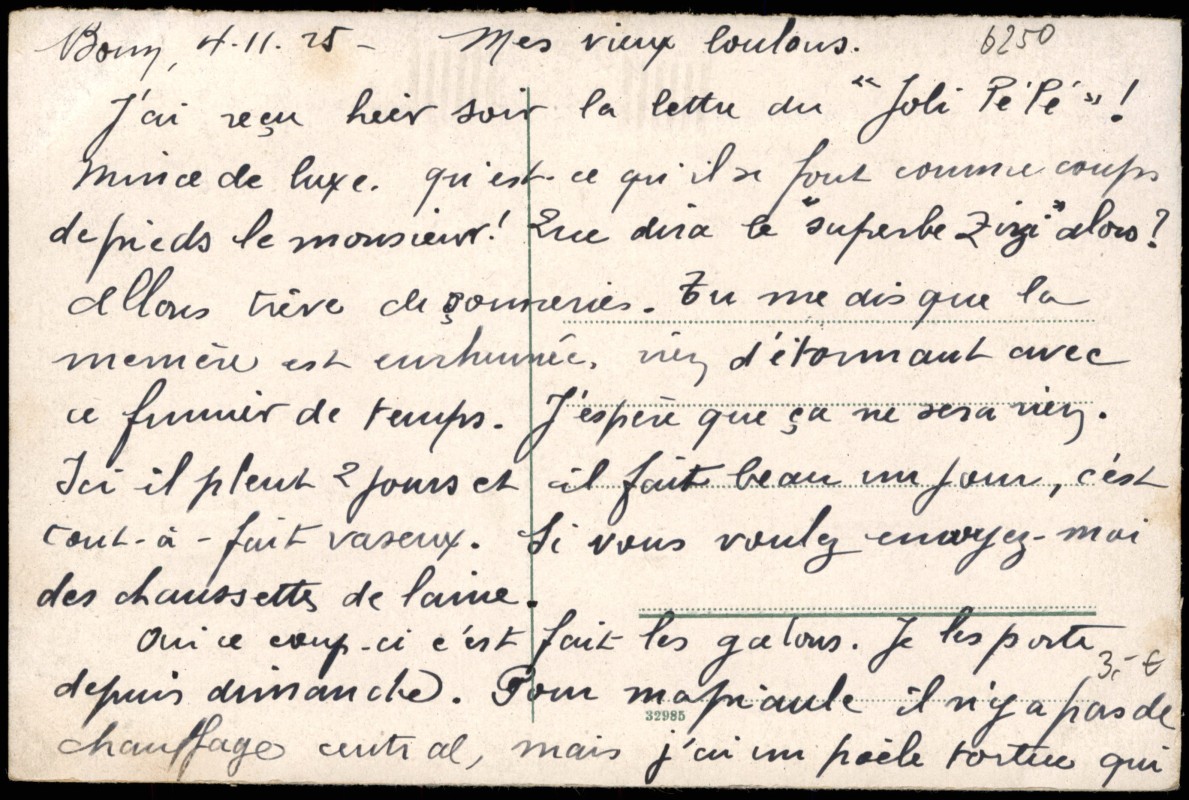 Bonn, 4.11.25 - Mes vieux loulous. 6250
J'ai reçu hier soir la lettre du "Joli Pé Pé"!
Mince de luxe. qu'est-ce qu'il se fout comme coups
de pieds le monsieur! Que dira le "superbe Zizi" alors?
allons trêve de çonneries. Tu me dis que la
memère est enrhumée, rien d'étonnant avec
ce fumier de temps. J'espère que ça ne sera rien.
Ici il pleut 2 jours et il fait beau un jour, c'est
tout-à-fait vaseux. Si vous voulez envoyez-moi
des chaussettes de laine.
Oui ce coup-ci c'est fait les galons. Je les porte
3,- €
depuis dimanche. Pour ma piaule il n'y a pas de
32985
chauffage central, mais j'ai un poële tortue qui